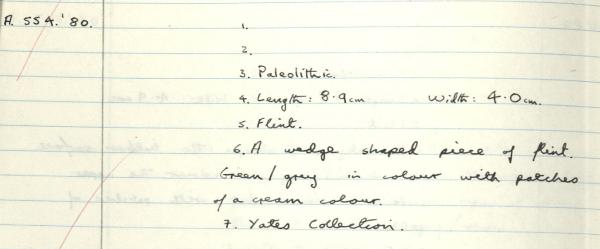 A. 554.'80. 1.
2.
3. Paleolithic.
4. Length: 8.9cm Width: 4.0cm.
5. Flint.
6. A wedge shaped piece of flint.
Green/grey in colour with patches
of a cream colour.
7. Yates Collection.